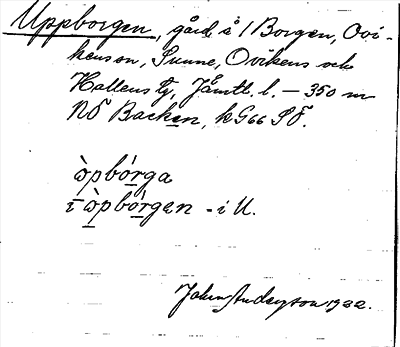 Uppborgen, gård å / Borgen, Ovi-
kens sn, Sunne, Ovikens och
Hallens tg, Jämtl. l. – 350 m
NO Backen, k G66 SO.
òpbórga
i òpbórgen - i U.
Johan Anderson 1922.